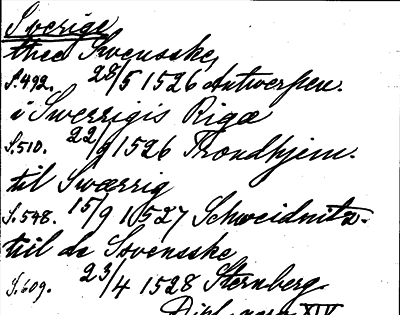 Sverige
thee Swensske
S.492. 28/5 1526 Antwerpen.
i Swerrigis Rigæ
S.510. 22/9 1526 Trondhjem.
til Swærrig
S.548. 15/9 1527 Schweidnitz.
till de Svensske
S.609. 23/4 1528 Sternberg
XIV